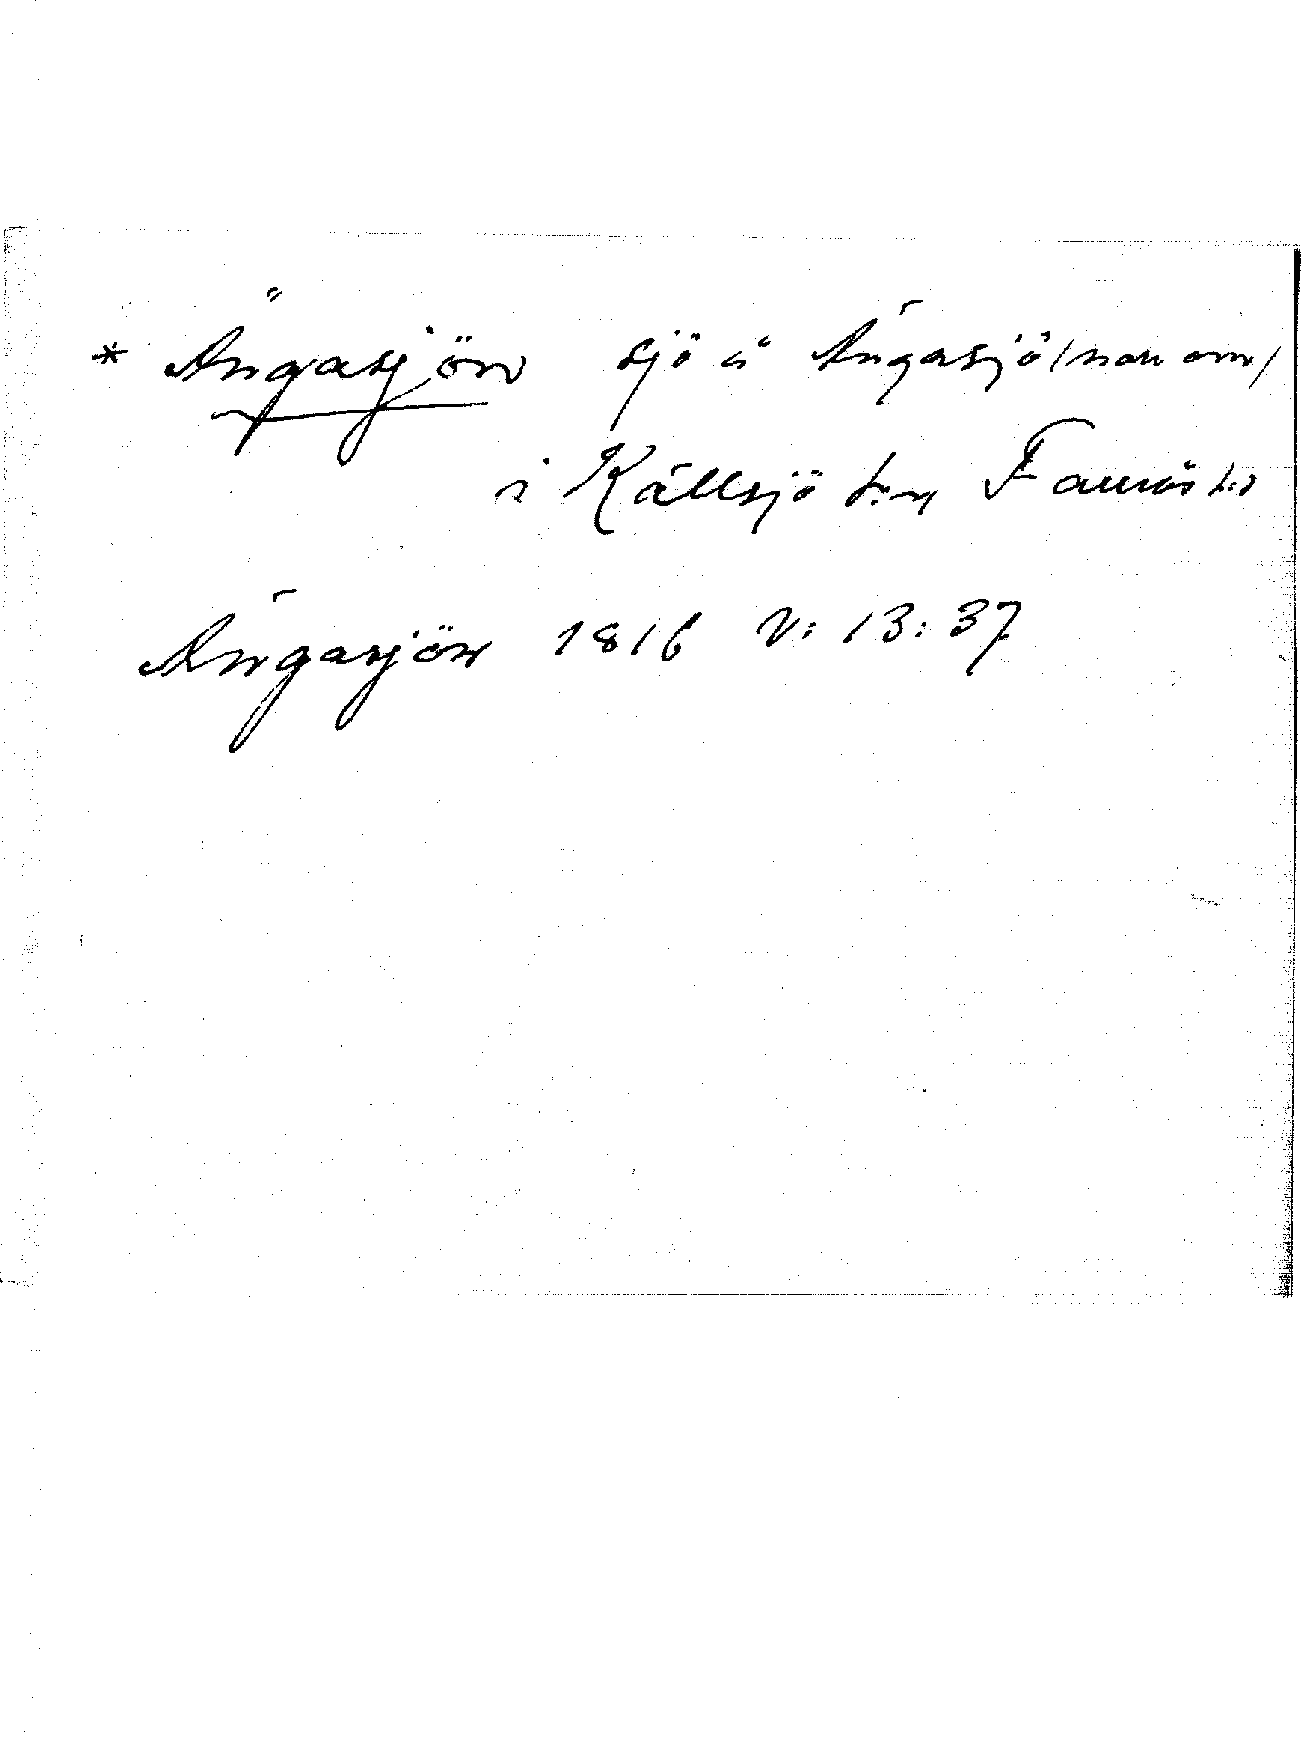 * Ängasjön sjö å Ängasjö (nr om)
i Källsjö s:n Faurås h:d
Ängasjön 1816 V: 13: 37